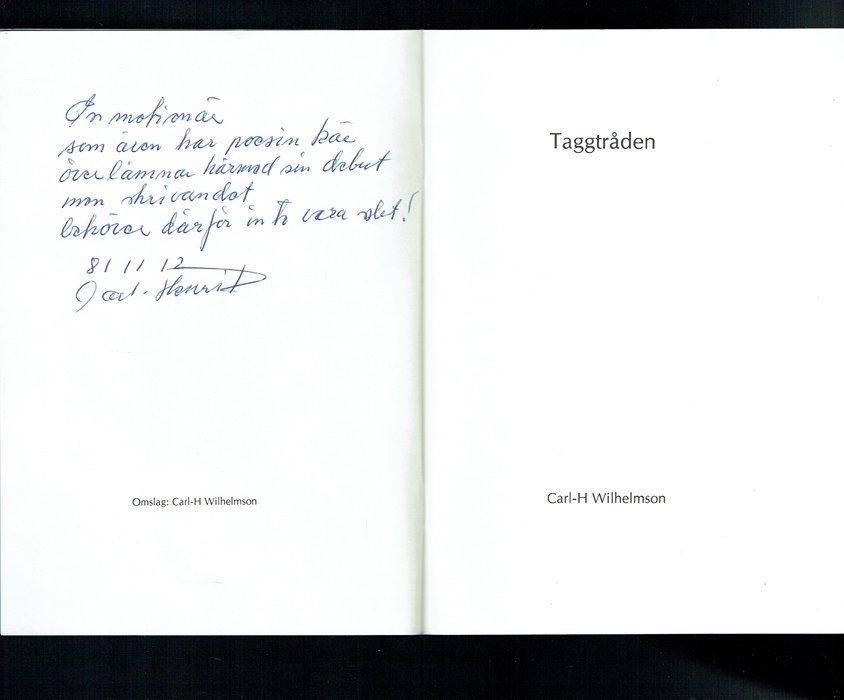 En motionär
som även har poesin kär
överlämnar härmed sin debut
men skrivandet
behöver därför inte vara slut!
81 11 12
Carl-Henrik
Omslag: Carl-H Wilhelmson
Taggtråden
Carl-H Wilhelmson